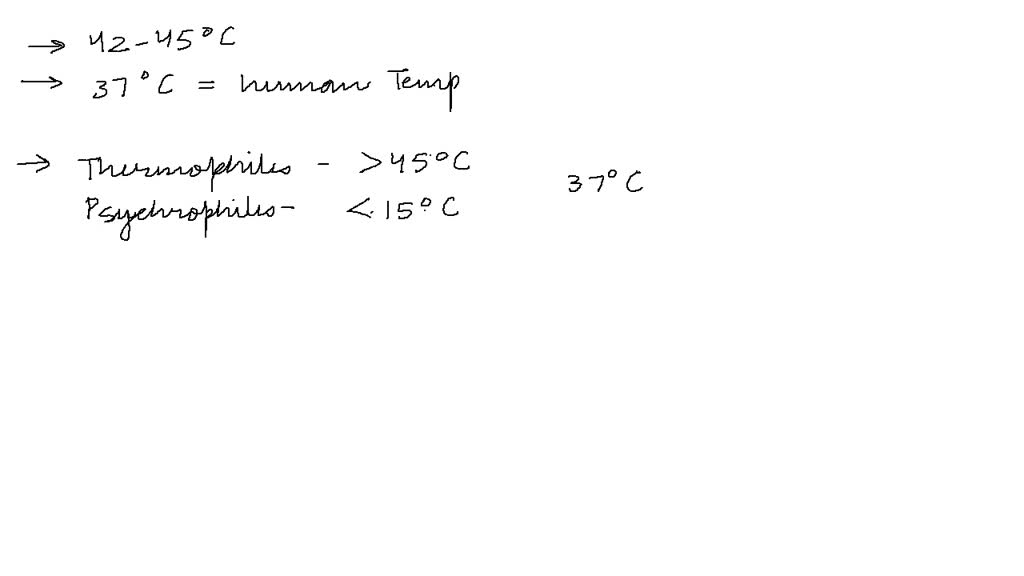 → 42-45°C
→ 37°C = human Temp
→ Thermophiles - >45°C
37°C
Psychrophiles- <15°C